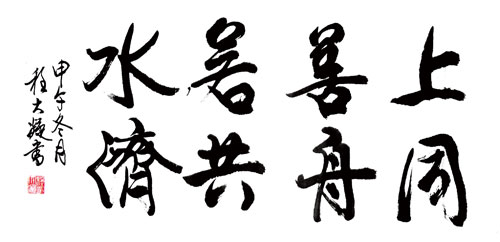 上善若水
同舟共濟
甲午冬月
程大書